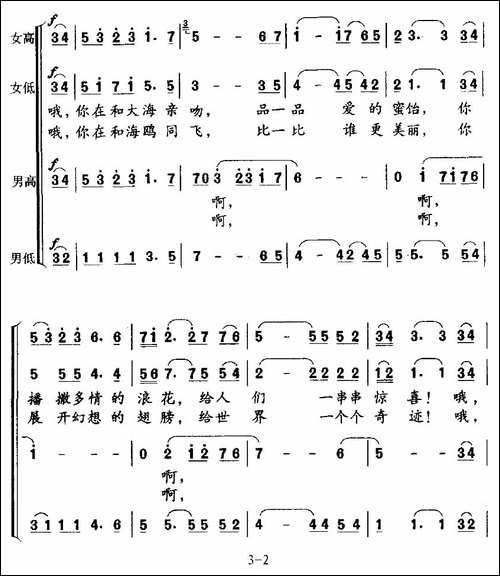 f
女高 34 | 5 3 2 3 1. 7 | 5 - - 6 7 | 1 - 1 7 6 5 | 2 3. 3 34 |
f
女低 34 | 5 1 7 1 5. 5 | 3 - - 3 5 | 4 - 4 5 4 2 | 2 1. 1 34 |
哦，你在和大海亲吻， 品一品 爱的蜜饴， 你
哦，你在和海鸥同飞， 比一比 谁更美丽， 你
f
男高 34 | 5 3 2 3 1. 7 | 7 0 3 2 3 1 7 | 6 - - - | 0 1 7 1 7 6 |
啊， 啊，
啊， 啊，
f
男低 32 | 1 1 1 1 3. 5 | 7 - - 6 5 | 4 - 4 2 4 5 | 5 5. 5 54 |
5 3 2 3 6. 6 | 7 1 2. 2 7 7 6 | 5 - 5 5 5 2 | 34 3. 3 34 |
5 5 5 4 6. 6 | 5 6 7. 7 5 5 4 | 2 - 2 2 2 2 | 12 1. 1 34 |
播撒多情的浪花，给人们 一串串惊喜！哦，
展开幻想的翅膀，给世界 一个个奇迹！哦，
1 - - - | 0 2 1 2 7 6 | 7 - - 6 | 5 - - 34 |
啊，
啊，
3 1 1 1 4. 6 | 5 5. 5 5 5 2 | 4 - 4 4 5 4 | 1 1. 1 32 |
3-2